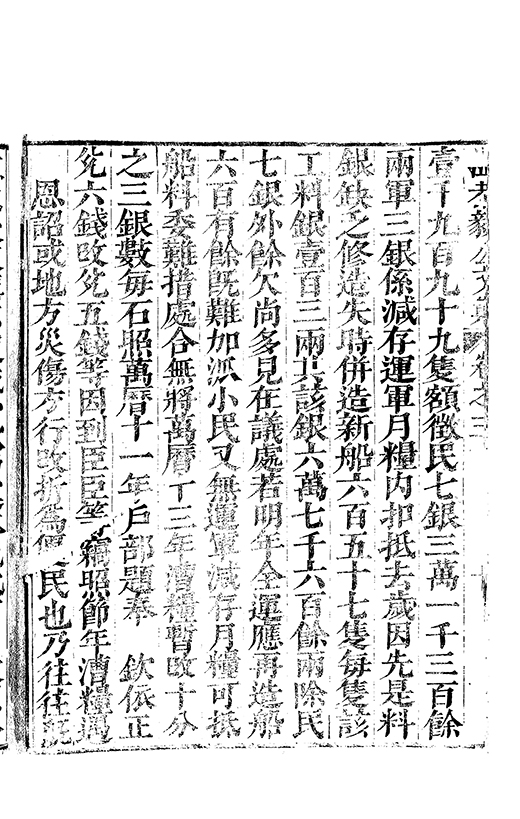 孝毅公文集 卷之三
壹千九百九十九隻額徵民七銀三萬一千三百餘
兩軍三銀係減存運軍月糧內扣抵去歲因先是料
銀缺乏修造失時併造新船六百五十七隻每隻該
工料銀壹百三兩共該銀六萬七千六百餘兩除民
七銀外餘欠尚多見在議處若明年全運應再造船
六百有餘既難加派小民又無運軍減存月糧可抵
船料委難措處合無將萬曆十三年漕糧暫改十分
之三銀數每石照萬曆十一年戶部題奉 欽依正
兊六錢改兊五錢等因到臣臣等竊照節年漕糧遇
恩詔或地方災傷方行改折為便民也乃往往